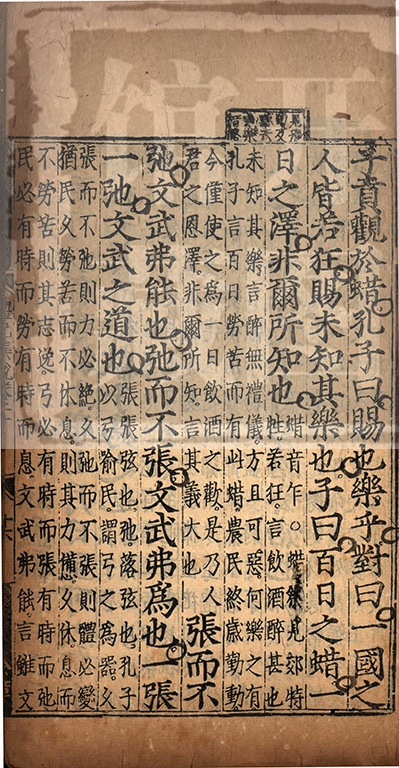 子貢觀於蜡孔子曰賜也樂乎對曰一國之
人皆若狂賜未知其樂也子曰百日之蜡一
日之澤非爾所知也
蜡音乍○蜡祭見郊特
牲若狂言飲酒醉甚也
未知其樂言醉無禮儀方且可惡何樂之有
孔子言百日勞苦而有此蜡農民終歲勤動
今僅使之為一日飲酒之歡是乃人
君之恩澤非爾所知言其義大也
張而不
弛文武弗能也弛而不張文武弗為也一張
一弛文武之道也
張張弦也弛落弦也孔子
以弓喻民謂弓之為器久
張而不弛則力必絕久弛而不張則體必變
猶民久勞苦而不休息則其力憊久休息而
不勞苦則其志逸弓必有時而張有時而弛
民必有時而勞有時而息文武弗能言雖文